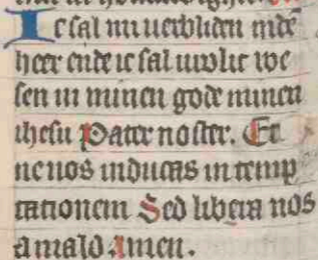 Ic sal mi verbliden inde
heer ende ic sal urolic we
sen in minen gode minen
ihesu Pater noster. Et
ne nos inducas in temp
tationem Sed libera nos
a malo Amen.